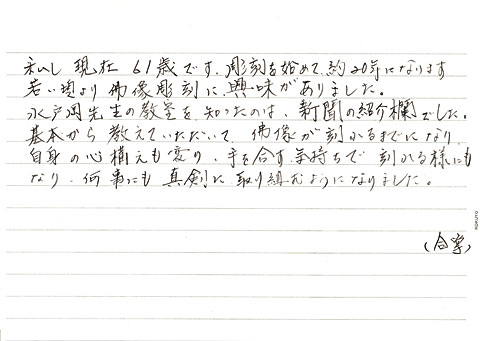 私し 現在 61歳です、彫刻を始めて、約20年になります
若い頃より 佛像彫刻に、興味がありました。
水戸岡先生の教室を、知ったのは、新聞の紹介欄でした。
基本から 教えていただいて、佛像が刻めるまでになり、
自身の心構えも変り、手を合す気持ちで 刻める様にも
なり、何事にも 真剣に 取り組むようになりました。
KOKUYO